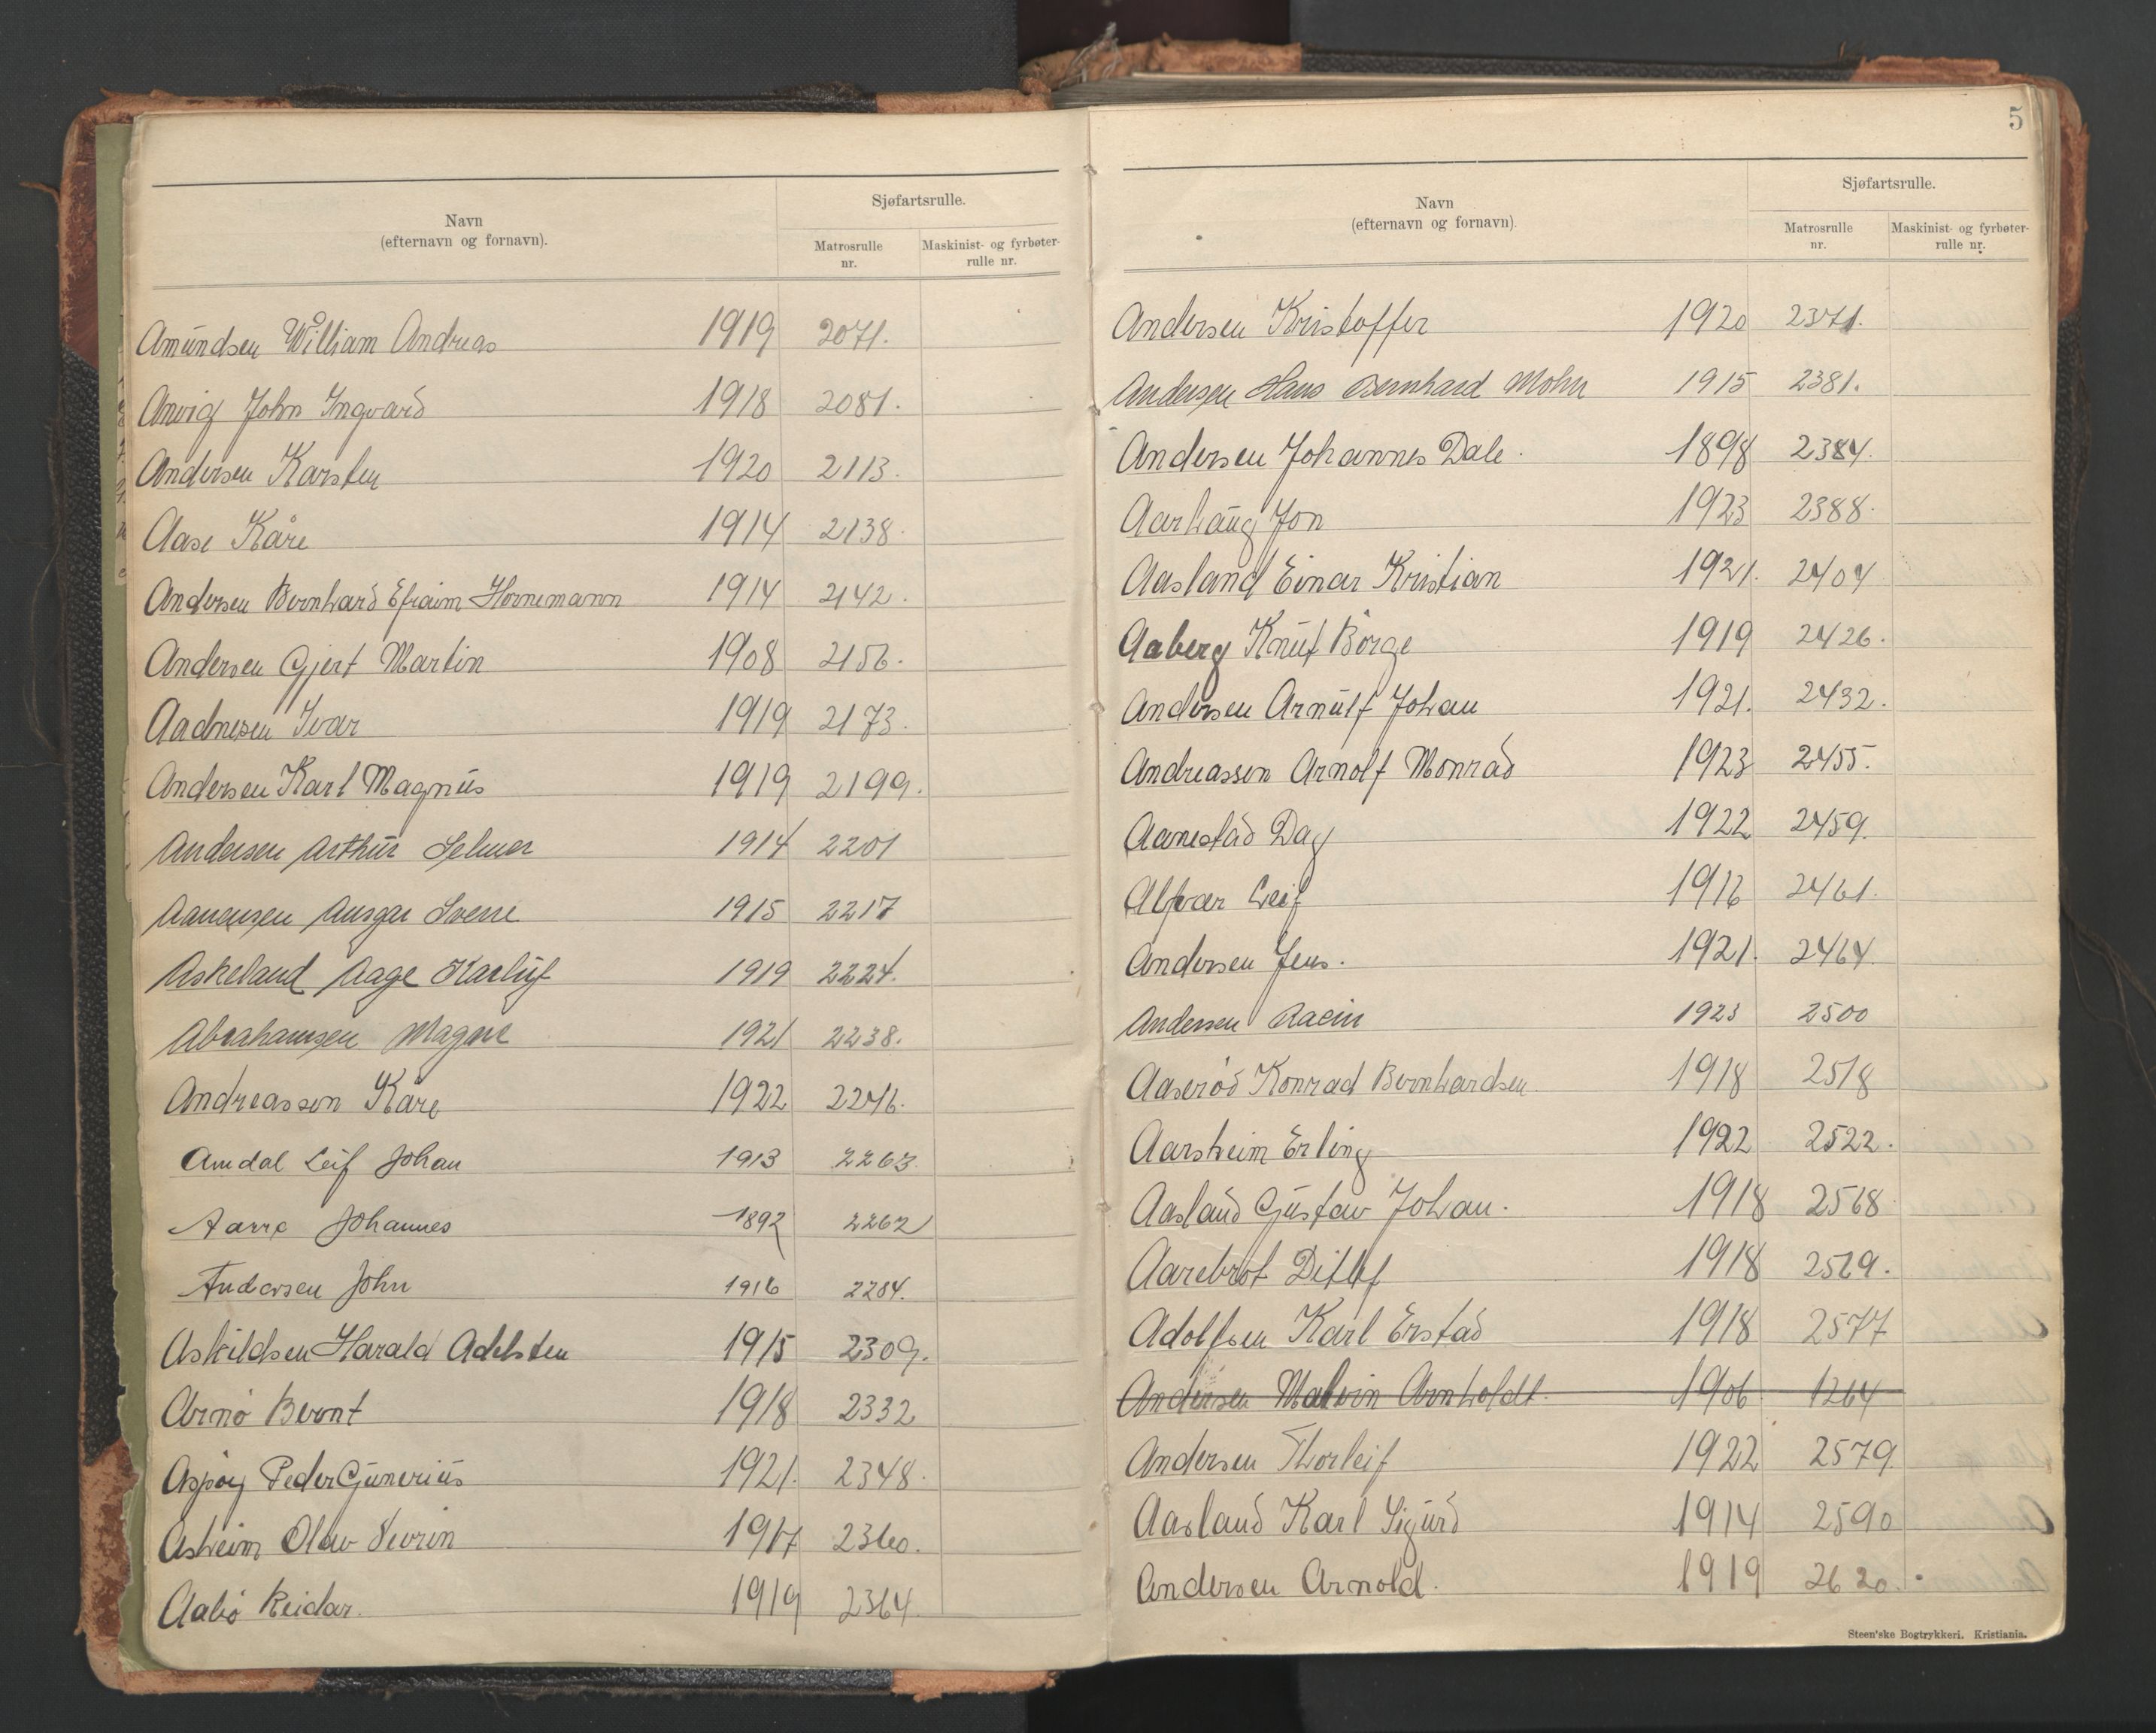 Navn
(efternavn og fornavn).
Sjøfartsrulle.
Matrosrulle
nr.
Maskinist- og fyrbøter-
rulle nr.
Amundsen William Andreas 1919 2071.
Anvig John Ingvard 1918 2081.
Andersen Karsten 1920 2113.
Aase Kåre 1914 2138.
Andersen Bernhard Efraim Hornemann 1914 2142.
Andersen Gjert Martin 1908 2156.
Aadnesen Ivar 1919 2173.
Andersen Karl Magnus 1919 2199.
Andersen Arthur Selmer 1914 2201
Aanensen Ansgar Sverre 1915 2217
Askeland Aage Karluf 1919 2224.
Abrahamsen Magne 1921 2238.
Andreassen Kåre 1922 2246.
Amdal Leif Johan 1913 2263.
Aarre Johannes 1892 2262
Andersen John 1916 2284.
Askildsen Harald Adelsten 1915 2309.
Arnö Bernt 1918 2332
Aspöy Peder Gunerius 1921. 2348.
Asheim Olav Sevrin 1917 2360.
Aabö Reidar. 1919 2364.
5
Navn
(efternavn og fornavn).
Sjøfartsrulle.
Matrosrulle
nr.
Maskinist- og fyrbøter-
rulle nr.
Andersen Kristoffer 1920 2371.
Andersen Hans Bernhard Mohn 1915 2381.
Andersen Johannes Dale. 1898 2384.
Aarhaug Jon 1923 2388.
Aasland Einar Kristian 1921. 2404
Aaberg Knut Börge 1919 2426.
Andersen Arnulf Johan 1921. 2432.
Andreassen Arnolf Monrad 1923 2455.
Aanestad Dag 1922 2459.
Leif 1916 2461.
Andersen Jens. 1921. 2464.
Andersen 1923 2500
Aaseröd Konrad Bernhardsen. 1918 2518
Aarsheim Erling 1922 2522.
Aasland Gustav Johan. 1918 2568
Aarebrot Ditlef 1918 2569.
Adolfsen Karl Erstad 1918 2577
Andersen Malvin Arnholdt. 1906 1264
Andersen Thorleif 1922 2579.
Aasland Karl Sigurd 1914 2590
Andersen Arnold. 1919 2620.
Steen'ske Bogtrykkeri. Kristiania.